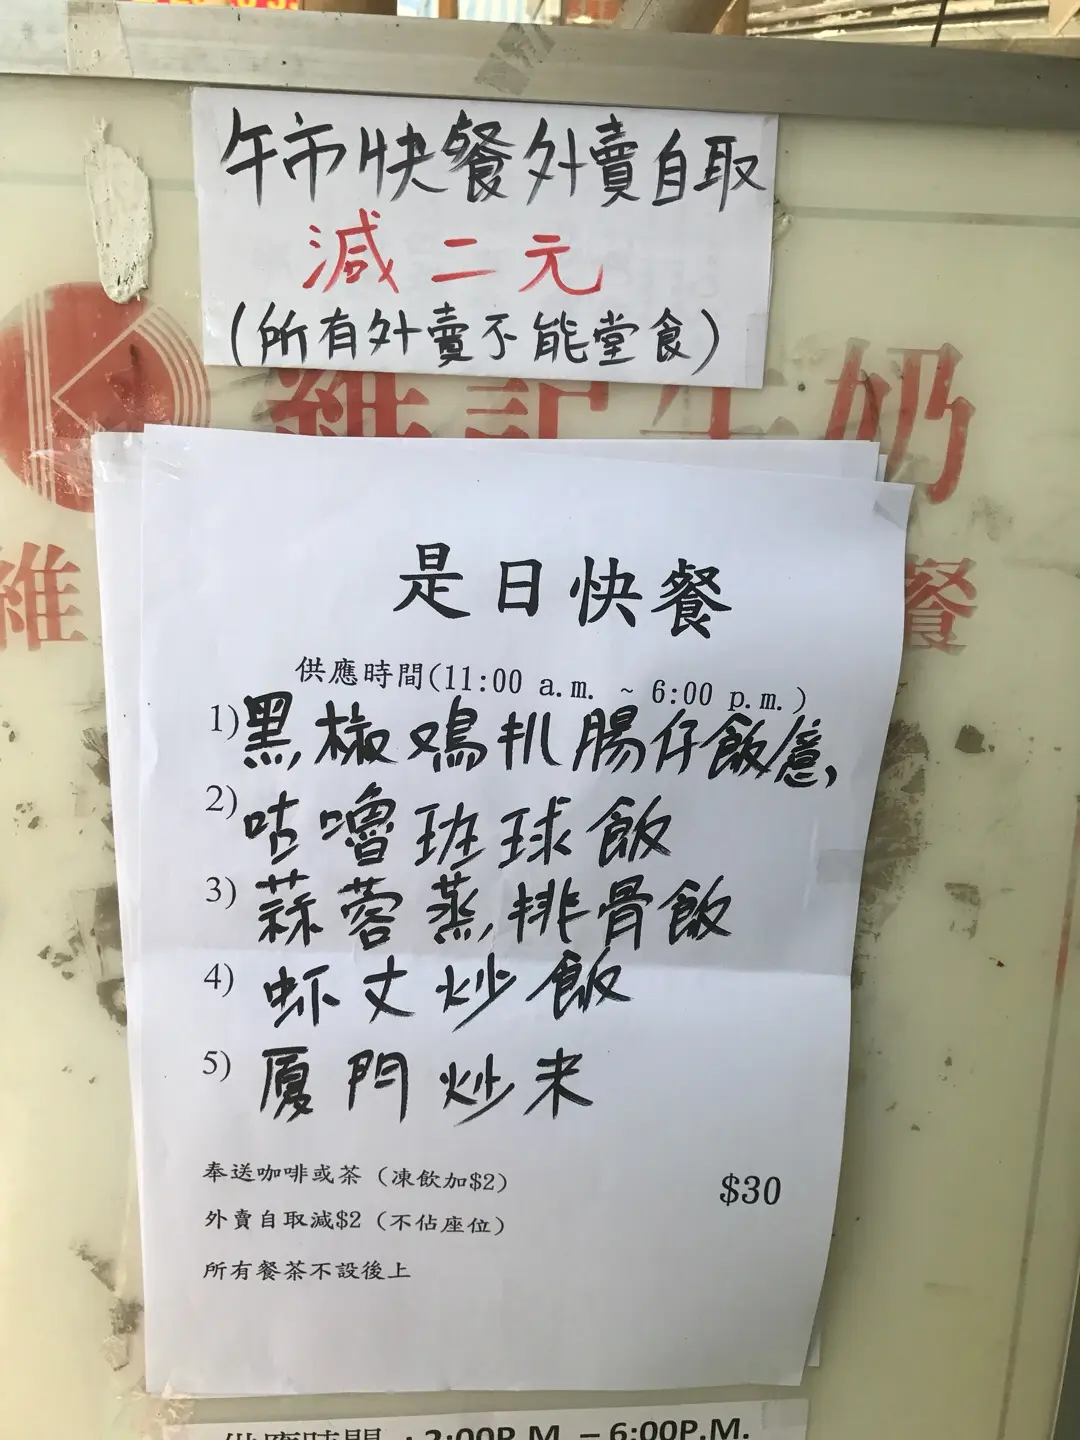 午市快餐外賣自取
減二元
(所有外賣不能堂食)
維記牛奶
維
餐
是日快餐
供應時間(11:00 a.m. ~ 6:00 p.m.)
1)黑椒鸡扒腸仔飯
2)咕嚕班球飯
3)蒜蓉蒸排骨飯
4)虾丈炒飯
5)厦門炒米
奉送咖啡或茶 (凍飲加$2)
$30
外賣自取減$2 (不佔座位)
所有餐茶不設後上
供應時間 : 2:00P.M. – 6:00P.M.